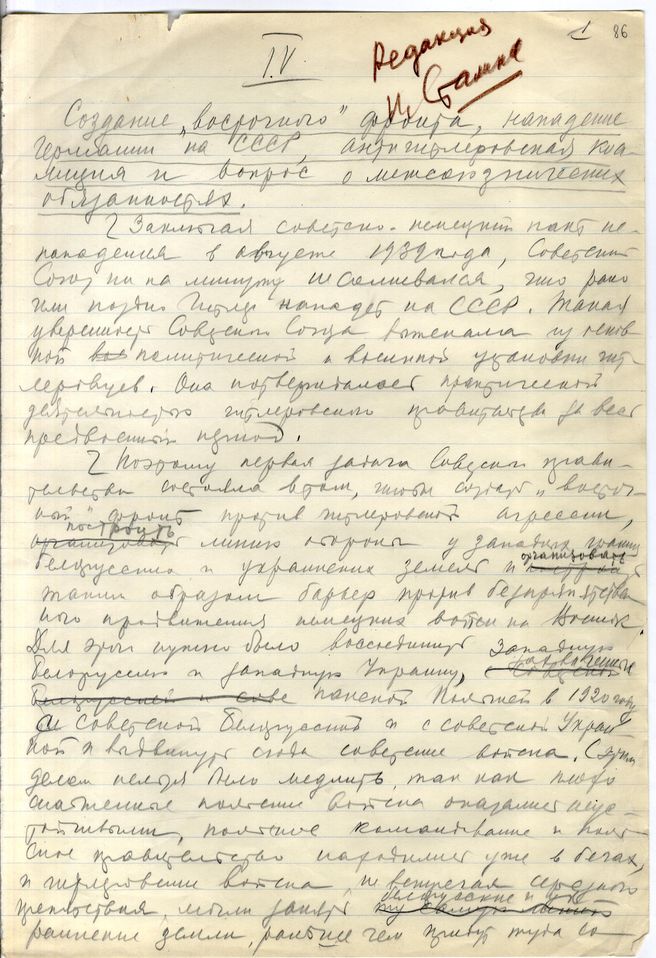 1 86
I.V
Редакция
И. Сталина
Создание „восточного" фронта, нападение
Германии на СССР, антигитлеровская коа-
лиция и вопрос о межсоюзнических
обязанностях.
Заключая советско-немецкий пакт не-
нападения в августе 1939 года, Советский
Союз ни на минуту не сомневался, что рано
или поздно Гитлер нападет на СССР. Такая
уверенность Советского Союза вытекала из основ-
ной политической и военной установки гит-
леровцев. Она подтверждалась практической
деятельностью гитлеровского правительства за весь
предвоенный период.
Поэтому первая задача Советского прави-
тельства состояла в том, чтобы создать „восточ-
ный" фронт против гитлеровской агрессии,
построить
линию обороны у западных границ
организовать
белорусских и украинских земель и
таким образом барьер против беспрепятствен-
ного продвижения немецких войск на Восток.
Для этого нужно было воссоединить Западную
захваченные
Белоруссию и западную Украину,
панской Польшей в 1920 году,
с советской Белоруссией и с советской Украи-
ной и выдвинуть сюда советские войска. С этим
делом нельзя было медлить, так как плохо
снабженные польские войска оказались неус-
тойчивыми, польское командование и поль-
ское правительство находились уже в бегах,
и гитлеровские войска, не встречая серьезного
белорусские и ук-
препятствия, могли занять
раинские земли, раньше чем придут туда со-